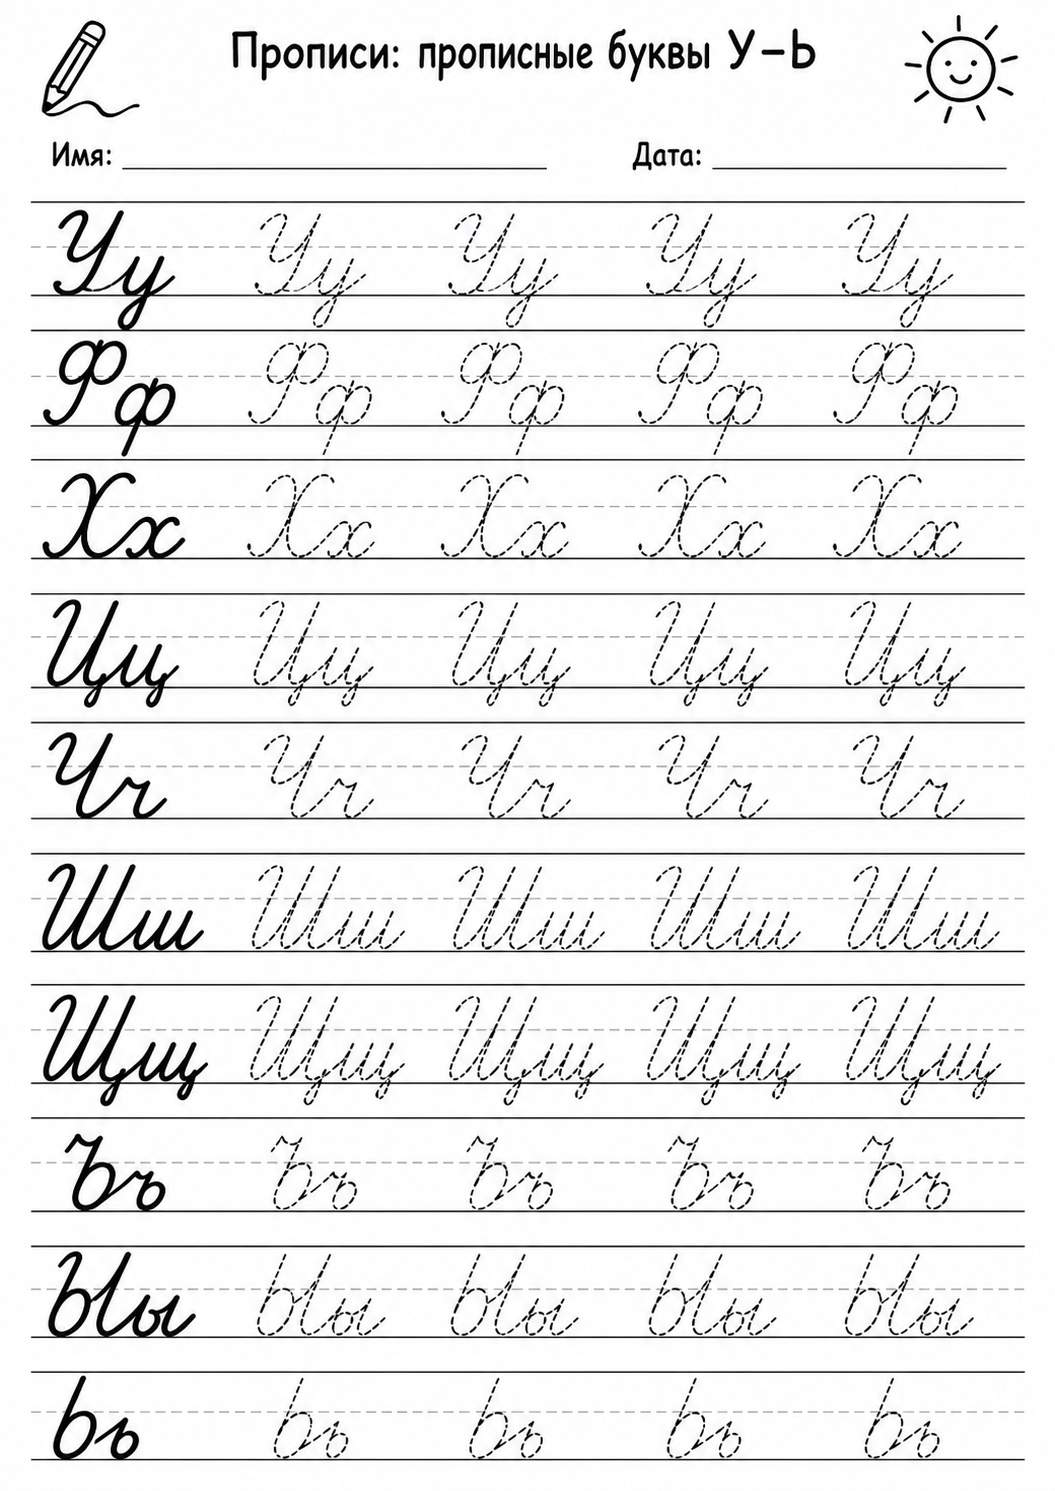 Прописи: прописные буквы У–Ь
Имя: Дата:
Уу Уу Уу Уу Уу
Фф Фф Фф Фф Фф
Хх Хх Хх Хх Хх
Цц Цц Цц Цц Цц
Чч Чч Чч Чч Чч
Шш Шш Шш Шш Шш
Щщ Щщ Щщ Щщ Щщ
Ъъ Ъъ Ъъ Ъъ Ъъ
Ыы Ыы Ыы Ыы Ыы
Ьь Ьь Ьь Ьь Ьь